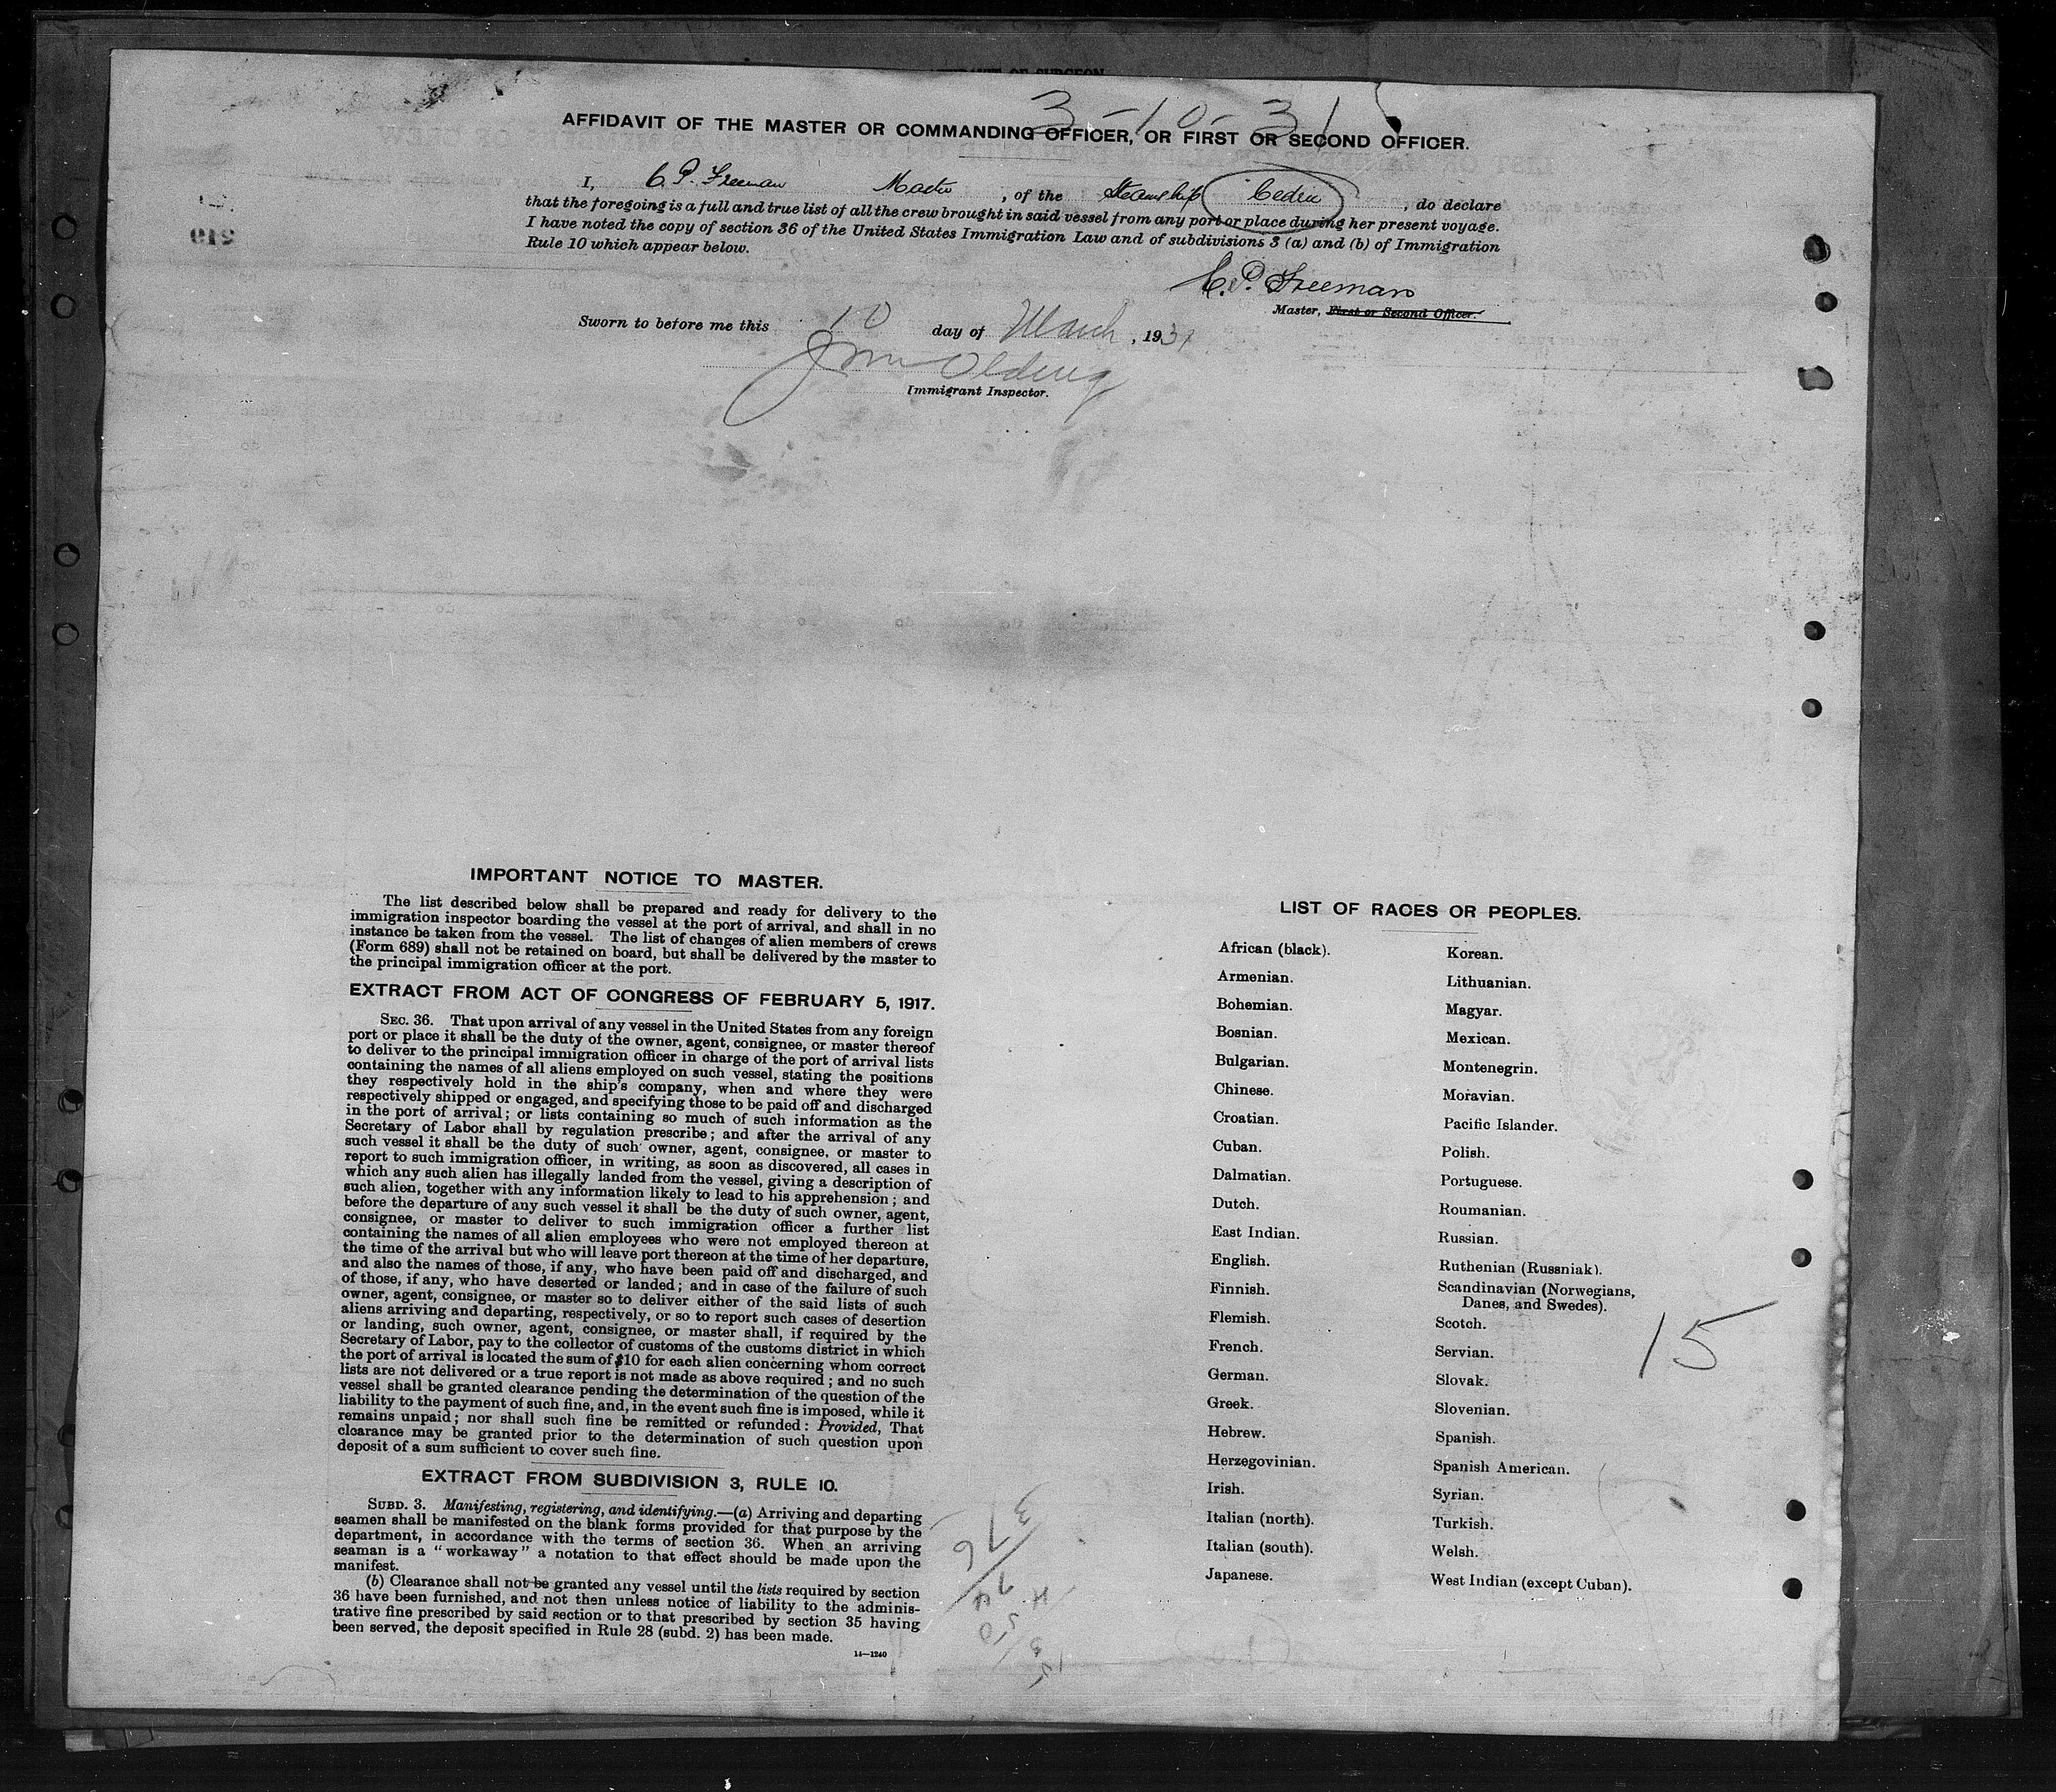 3-10-31
AFFIDAVIT OF THE MASTER OR COMMANDING OFFICER, OR FIRST OR SECOND OFFICER.
I, C. P. Freeman Master, of the Steamship Cedric, do declare
that the foregoing is a full and true list of all the crew brought in said vessel from any port or place during her present voyage.
I have noted the copy of section 36 of the United States Immigration Law and of subdivisions 3 (a) and (b) of Immigration
Rule 10 which appear below.
C. P. Freeman
Master, First or Second Officer.
Sworn to before me this 10 day of March, 1931
Immigrant Inspector.
IMPORTANT NOTICE TO MASTER.
The list described below shall be prepared and ready for delivery to the
immigration inspector boarding the vessel at the port of arrival, and shall in no
instance be taken from the vessel. The list of changes of alien members of crews
(Form 689) shall not be retained on board, but shall be delivered by the master to
the principal immigration officer at the port.
EXTRACT FROM ACT OF CONGRESS OF FEBRUARY 5, 1917.
SEC. 36. That upon arrival of any vessel in the United States from any foreign
port or place it shall be the duty of the owner, agent, consignee, or master thereof
to deliver to the principal immigration officer in charge of the port of arrival lists
containing the names of all aliens employed on such vessel, stating the positions
they respectively hold in the ship's company, when and where they were
respectively shipped or engaged, and specifying those to be paid off and discharged
in the port of arrival; or lists containing so much of such information as the
Secretary of Labor shall by regulation prescribe; and after the arrival of any
such vessel it shall be the duty of such owner, agent, consignee, or master to
report to such immigration officer, in writing, as soon as discovered, all cases in
which any such alien has illegally landed from the vessel, giving a description of
such alien, together with any information likely to lead to his apprehension; and
before the departure of any such vessel it shall be the duty of such owner, agent,
consignee, or master to deliver to such immigration officer a further list
containing the names of all alien employees who were not employed thereon at
the time of the arrival but who will leave port thereon at the time of her departure,
and also the names of those, if any, who have been paid off and discharged, and
of those, if any, who have deserted or landed; and in case of the failure of such
owner, agent, consignee, or master so to deliver either of the said lists of such
aliens arriving and departing, respectively, or so to report such cases of desertion
or landing, such owner, agent, consignee, or master shall, if required by the
Secretary of Labor, pay to the collector of customs of the customs district in which
the port of arrival is located the sum of $10 for each alien concerning whom correct
lists are not delivered or a true report is not made as above required; and no such
vessel shall be granted clearance pending the determination of the question of the
liability to the payment of such fine, and, in the event such fine is imposed, while it
remains unpaid; nor shall such fine be remitted or refunded: Provided, That
clearance may be granted prior to the determination of such question upon
deposit of a sum sufficient to cover such fine.
EXTRACT FROM SUBDIVISION 3, RULE 10.
SUBD. 3. Manifesting, registering, and identifying.—(a) Arriving and departing
seamen shall be manifested on the blank forms provided for that purpose by the
department, in accordance with the terms of section 36. When an arriving
seaman is a "workaway" a notation to that effect should be made upon the
manifest.
(b) Clearance shall not be granted any vessel until the lists required by section
36 have been furnished, and not then unless notice of liability to the adminis-
trative fine prescribed by said section or to that prescribed by section 35 having
been served, the deposit specified in Rule 28 (subd. 2) has been made.
14—1240
LIST OF RACES OR PEOPLES.
African (black).
Armenian.
Bohemian.
Bosnian.
Bulgarian.
Chinese.
Croatian.
Cuban.
Dalmatian.
Dutch.
East Indian.
English.
Finnish.
Flemish.
French.
German.
Greek.
Hebrew.
Herzegovinian.
Irish.
Italian (north).
Italian (south).
Japanese.
Korean.
Lithuanian.
Magyar.
Mexican.
Montenegrin.
Moravian.
Pacific Islander.
Polish.
Portuguese.
Roumanian.
Russian.
Ruthenian (Russniak).
Scandinavian (Norwegians,
Danes, and Swedes).
Scotch.
Servian.
Slovak.
Slovenian.
Spanish.
Spanish American.
Syrian.
Turkish.
Welsh.
West Indian (except Cuban).
15